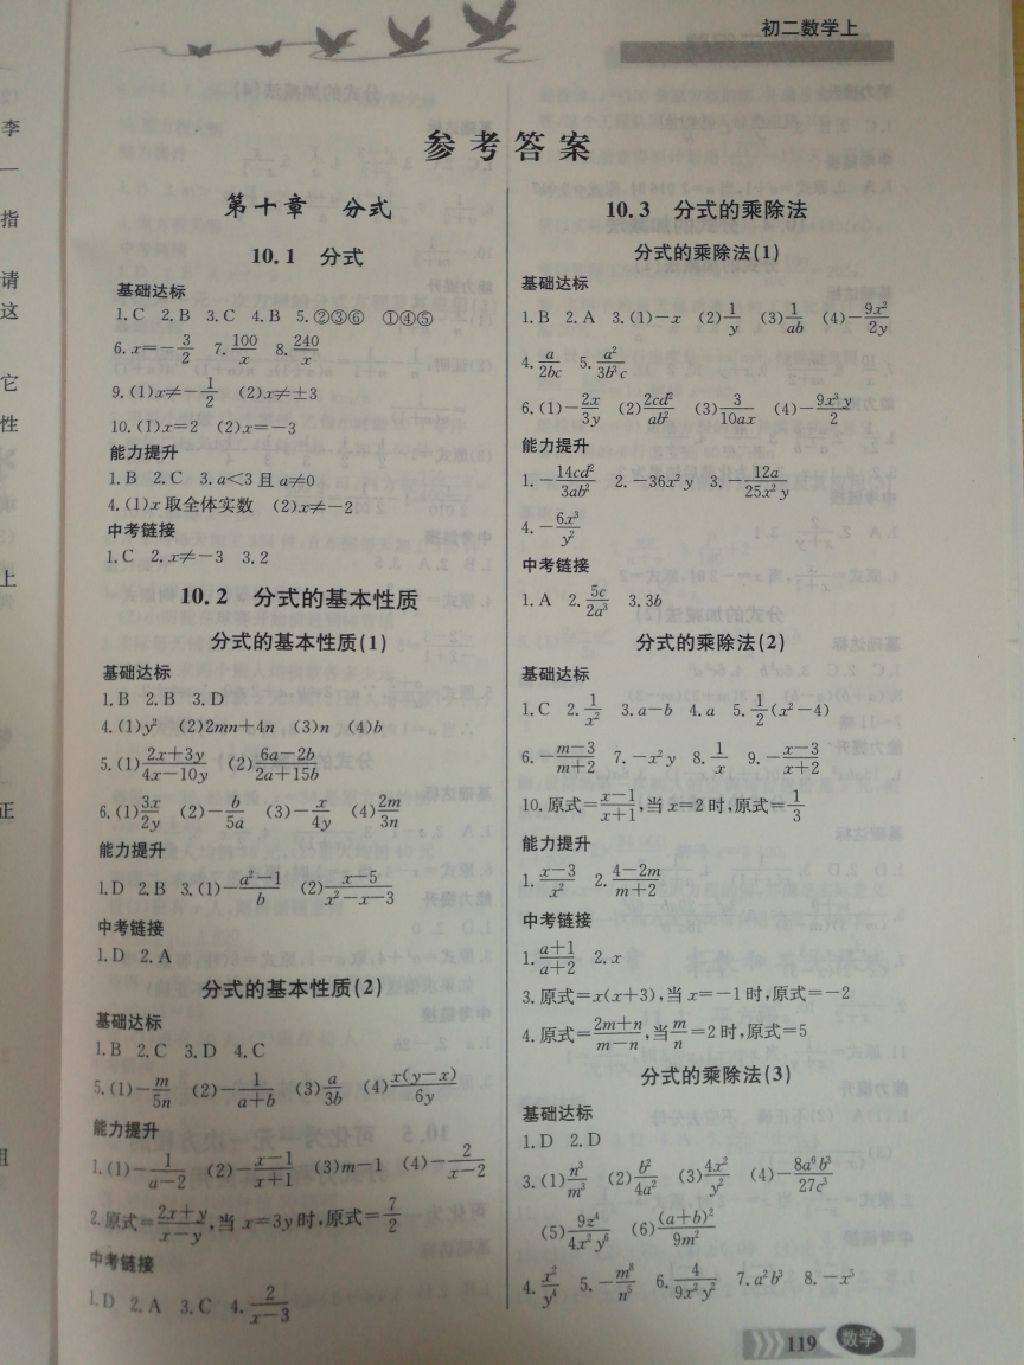 初二数学上
参考答案
第十章 分式
10.1 分式
基础达标
1.C 2.B 3.C 4.B 5.②③⑥ ①④⑤
6.x=-3/2 7.100/x 8.240/x
9.(1)x≠-1/2 (2)x≠±3
10.(1)x=2 (2)x=-3
能力提升
1.B 2.C 3.a<3且a≠0
4.(1)x取全体实数 (2)x≠-2
中考链接
1.C 2.x≠-3 3.2
10.2 分式的基本性质
分式的基本性质(1)
基础达标
1.B 2.B 3.D
4.(1)y² (2)2mn+4n (3)n (4)b
5.(1)(2x+3y)/(4x-10y) (2)(6a-2b)/(2a+15b)
6.(1)3x/2y (2)-b/5a (3)-x/4y (4)2m/3n
能力提升
1.D 2.B 3.(1)-(a²-1)/b (2)(x-5)/(x²-x-3)
中考链接
1.D 2.A
分式的基本性质(2)
基础达标
1.B 2.C 3.D 4.C
5.(1)-m/5n (2)-1/(a+b) (3)a/3b (4)x(y-x)/6y
能力提升
1.(1)-1/(a-2) (2)-(x-1)/(x+1) (3)m-1 (4)-2/(x-2)
2.原式=(2x+y)/(x-y),当x=3y时,原式=7/2
中考链接
1.D 2.A 3.C 4.2/(x-3)
10.3 分式的乘除法
分式的乘除法(1)
基础达标
1.B 2.A 3.(1)-x (2)1/y (3)1/ab (4)-9x²/2y
4.a/2bc 5.a²/3b²c
6.(1)-2x/3y (2)2cd²/ab² (3)3/10ax (4)-9x²y/2
能力提升
1.-14cd²/3ab² 2.-36x²y 3.-12a/25x²y
4.-6x³/y²
中考链接
1.A 2.5c/2a³ 3.3b
分式的乘除法(2)
基础达标
1.C 2.1/x² 3.a-b 4.a 5.1/2(x²-4)
6.-(m-3)/(m+2) 7.-x²y 8.1/x 9.-(x-3)/(x+2)
10.原式=(x-1)/(x+1),当x=2时,原式=1/3
能力提升
1.(x-3)/x² 2.(4-2m)/(m+2)
中考链接
1.(a+1)/(a+2) 2.x
3.原式=x(x+3),当x=-1时,原式=-2
4.原式=(2m+n)/(m-n),当m/n=2时,原式=5
分式的乘除法(3)
基础达标
1.D 2.D
3.(1)n³/m³ (2)b²/4a² (3)4x²/y² (4)-8a⁶b³/27c³
(5)9z⁴/4x²y⁶ (6)(a+b)²/9m²
4.x²/y⁴ 5.-m⁸/n⁵ 6.4/9x²y² 7.a²b³ 8.-x⁵
119 数学